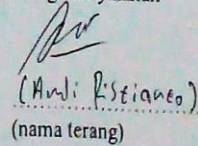 (Andi Ristianto)
(nama terang)